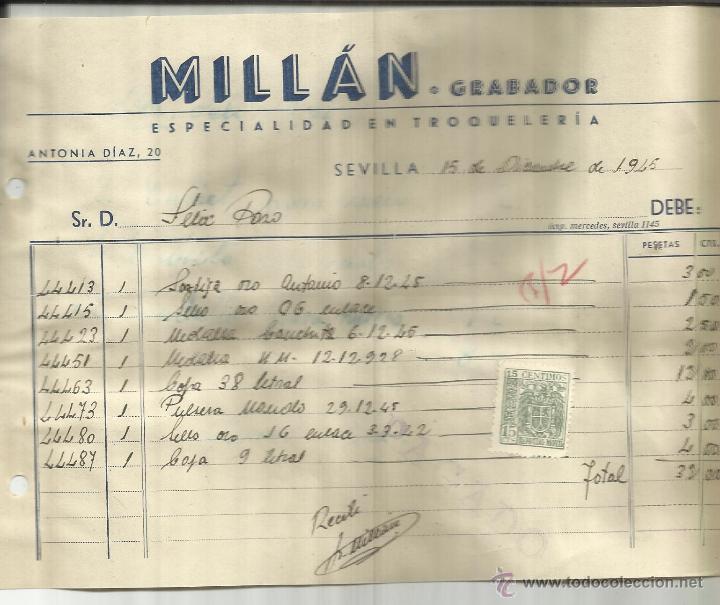 MILLÁN • GRABADOR
ESPECIALIDAD EN TROQUELERÍA
ANTONIA DÍAZ, 20
SEVILLA 15 de Diciembre de 1945
Sr. D. Félix Pozo DEBE:
imp. mercedes, sevilla 1145
PESETAS CTS.
44413 1 Sortija oro Antonio 8-12-45 3 00
44415 1 Sello oro OG enlace 1 50
44423 1 Medalla Conchita 6-12-45 2 50
44451 1 Medalla 12-12-928 2 00
44463 1 Copa 38 letras 12 00
44473 1 Pulsera Manolo 29-12-45 4 00
44480 1 Sello oro JG enlace 3-9-22 3 00
44487 1 Copa 9 letras 4 00
Total 32 00
15 CENTIMOS
15
PAGADO
Recibí
Millán
www.todocoleccion.net